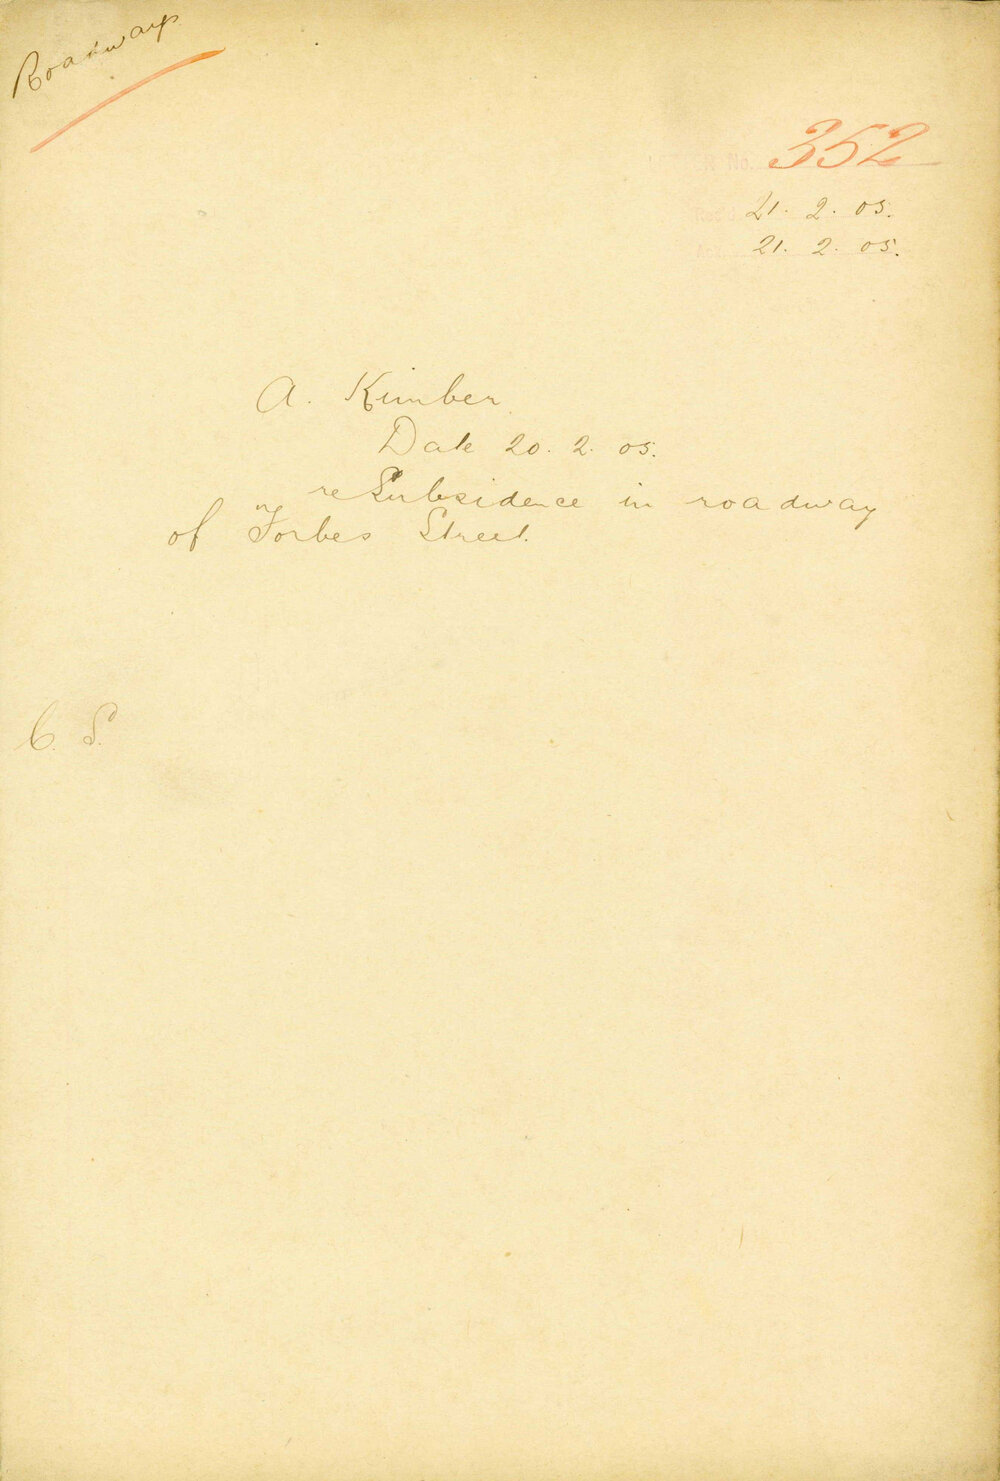 Roadways
No. 352
Rec'd 21. 2. 05.
21. 2. 05.
A. Kimber
Date 20. 2. 05.
re Subsidence in roadway
of Forbes Street.
C. S.